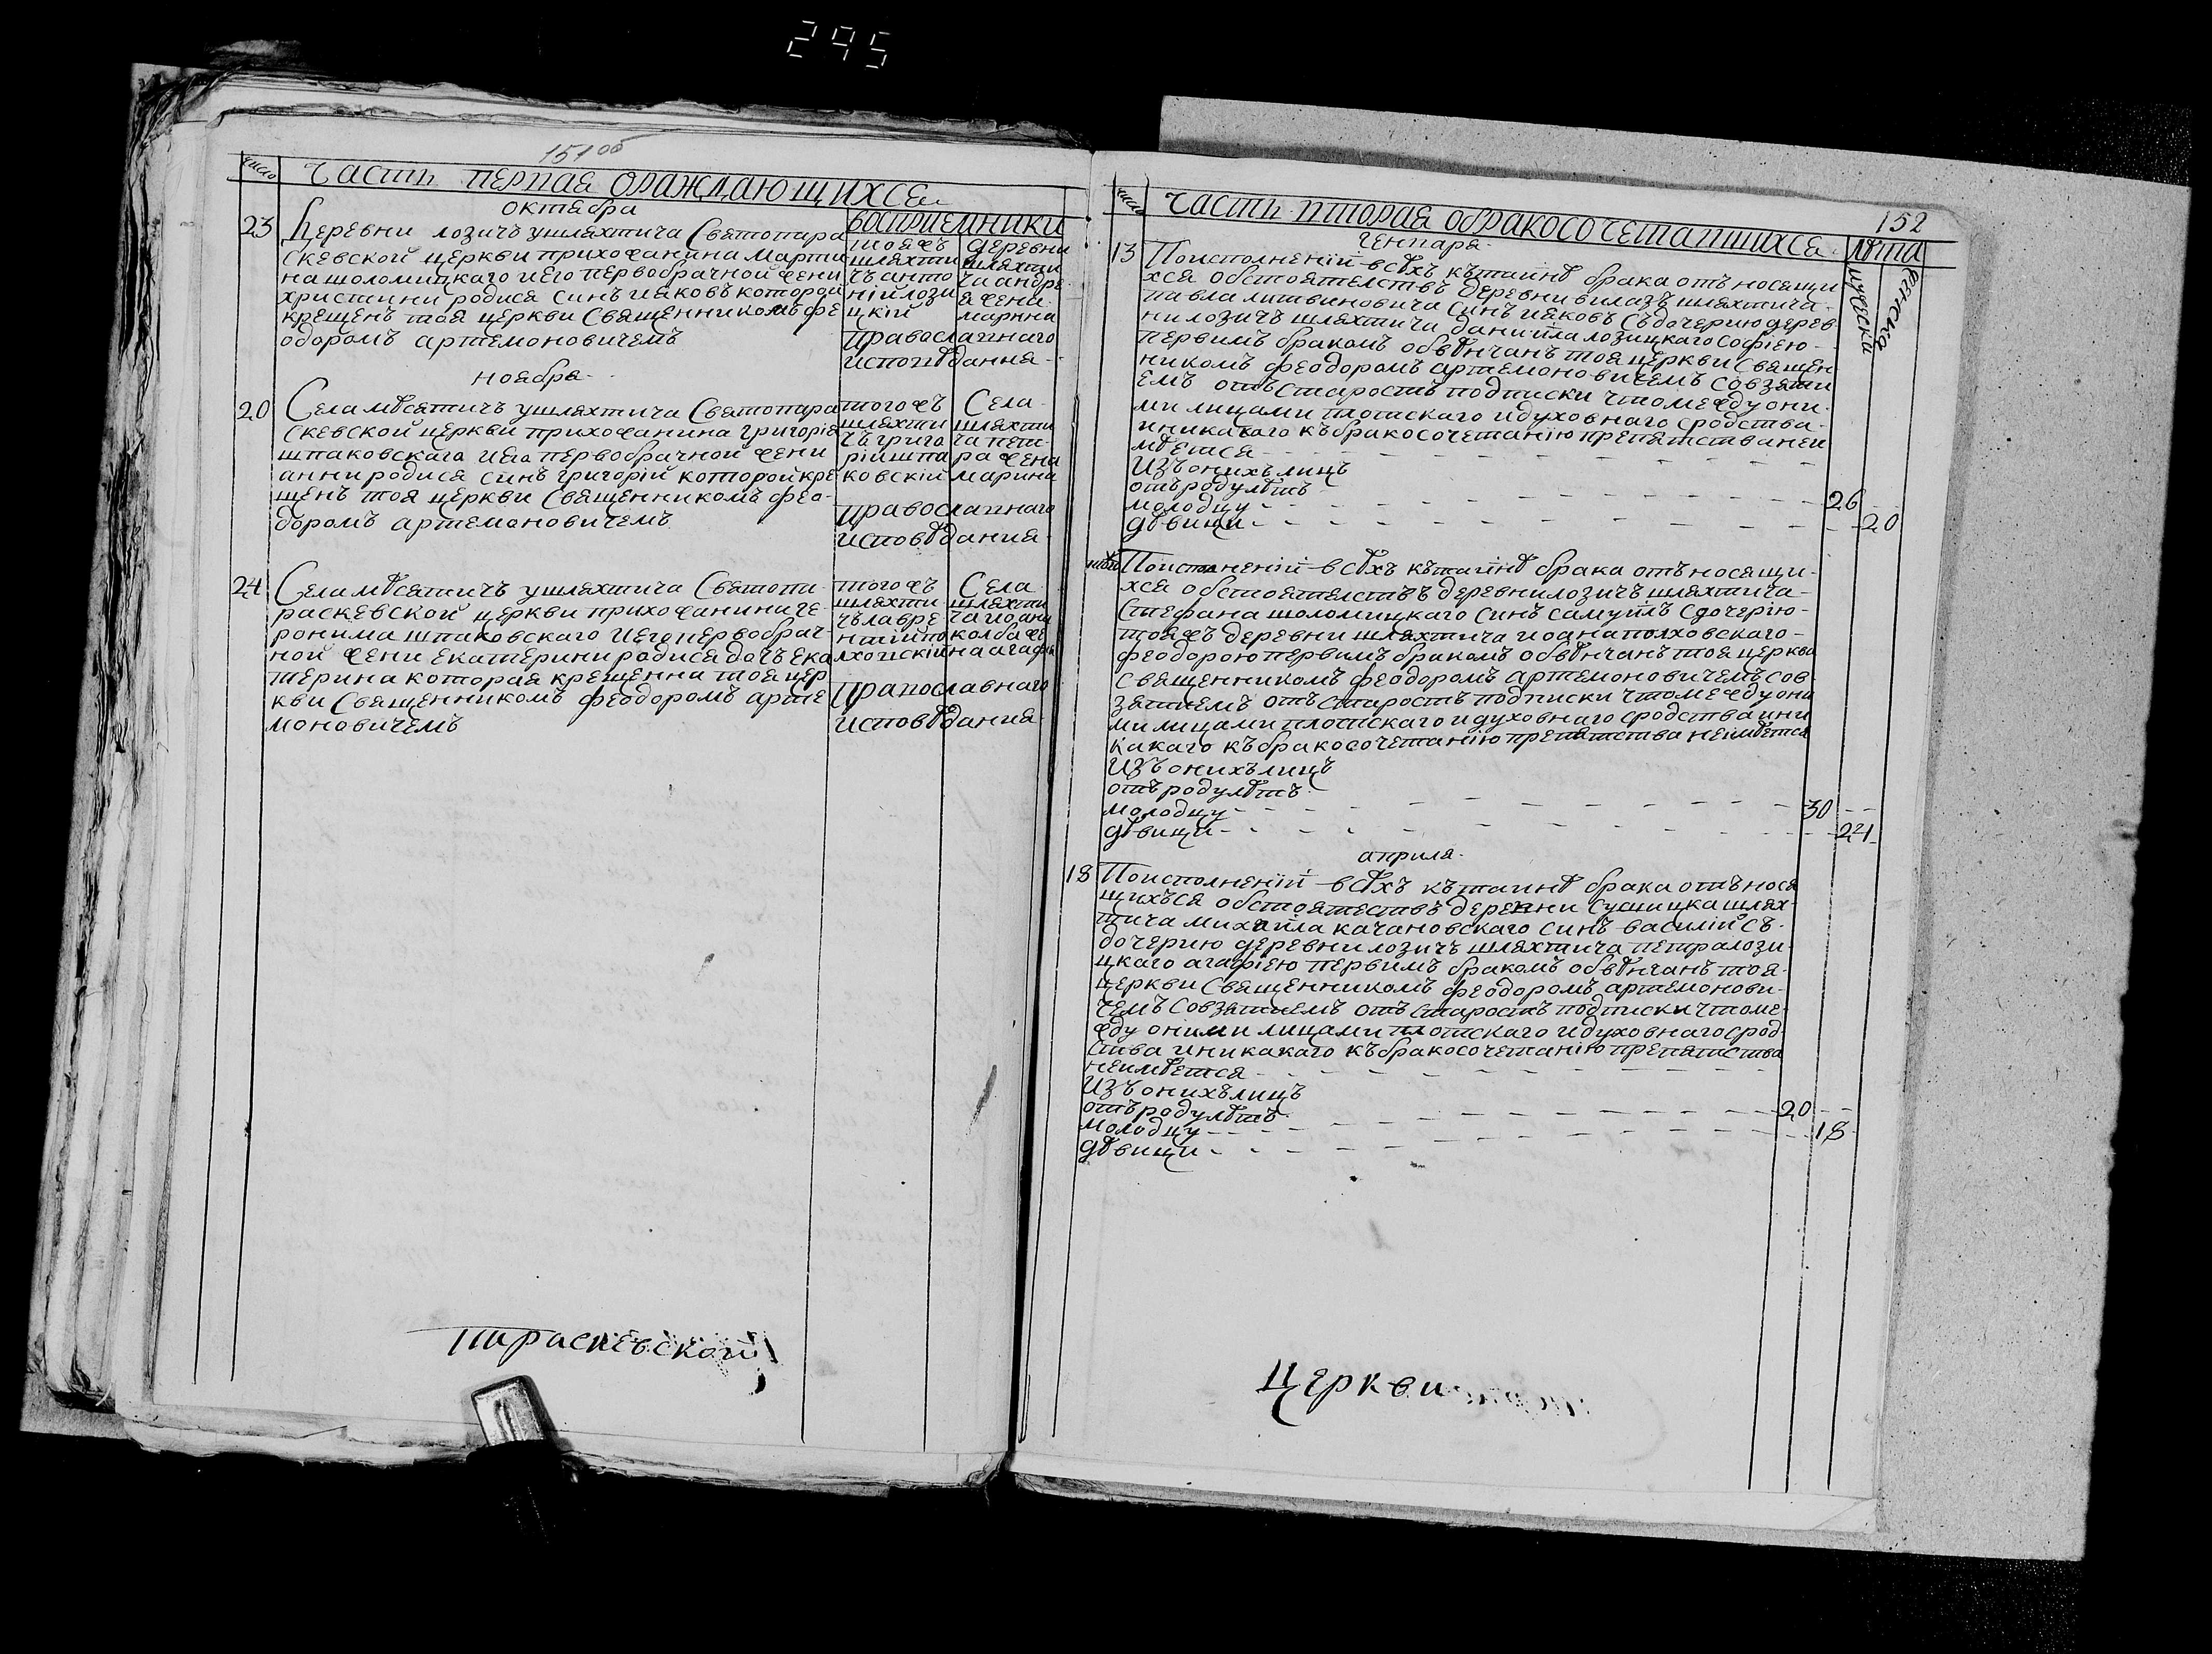 295
151 об
число
Часть первая о раждающихся
октября
восприемники
23
Деревни лозичъ ушляхтича Святопара
скевской церкви прихожанина марти
на шоломицкаго иего первобрачной жени
христини родися синъ иаковъ которой
крещенъ тоя церкви Священникомъ фе
одоромъ артемоновичемъ
тояжъ
шляхти
чъ анто
ній лози
цкій
деревни
шляхти
ча андре
я жена
марина
православнаго
исповѣдания
ноября
20
Села мѣсятичъ ушляхтича Святопара
скевской церкви прихожанина григорія
шпаковскаго иего первобрачной жени
анни родися синъ григорій которой кре
щенъ тоя церкви Священникомъ фео
доромъ артемоновичемъ
тогожъ
шляхти
чъ григо
рій шпа
ковскій
Села
шляхти
ча пет
ра жена
марина
православнаго
исповѣдания
24
Села мѣсятичъ ушляхтича Святопа
раскевской церкви прихожанина ге
ронима шпаковскаго иего первобрач
ной жени екатерини родися дочъ ека
терина которая крещенна тоя цер
кви Священникомъ феодоромъ арте
моновичемъ
тогожъ
шляхти
чъ лавре
нтій по
лховскій
Села
шляхти
ча иоана
колба же
на агафія
православнаго
исповѣдания
параскевской
152
число
Часть вторая обракосочетавшихся
лѣта
мужескіа
женскіа
генваря
13
Поисполненій всѣхъ кътаинѣ брака отъносящи
хся обстоятелствъ деревни вилазъ шляхтича
павла литвиновича синъ иаковъ съдочерию дерев
ни лозичъ шляхтича даниіла лозицкаго софіею
первимъ бракомъ обвѣнчанъ тоя церкви священ
никомъ феодоромъ артемоновичемъ совзяти
емъ отъ старостъ подписки чтомежду они
ми лицами плотскаго идуховнаго сродства
иникакого къбракосочетанію препятства неи
мѣется
Изъ онихълицъ
отъродулѣтъ
молодцу 26
дѣвици 20
Поисполненій всѣхъ кътаинѣ брака отъносящи
хся обстоятелствъ деревни лозичъ шляхтича
Стефана шоломицкаго синъ самуілъ сдочерію
тояжъ деревни шляхтича иоана полховскаго
феодорою первимъ бракомъ обвѣнчанъ тоя церкви
священникомъ феодоромъ артемоновичемъ сов
зятиемъ отъ старостъ подписки чтомежду они
ми лицами плотскаго идуховнаго сродства ини
какаго къбракосочетанію препятства неимѣется
Изъ онихълицъ
отъродулѣтъ
молодцу 30
дѣвици 24
априля
18
Поисполненій всѣхъ кътаинѣ брака отънося
щихъся обстоятествъ деревни Сушицка шлях
тича михаіла качановскаго синъ василій съ
дочерию деревни лозичъ шляхтича петра лози
цкаго агафіею первимъ бракомъ обвѣнчанъ тоя
церкви Священникомъ феодоромъ артемонови
чемъ совзятиемъ отъ старостъ подписки чтоме
жду оними лицами плотскаго идуховнаго срод
ства иникакаго къбракосочетанію препятства
неимѣется
Изъ онихълицъ
отъродулѣтъ
молодцу 20
дѣвици 18
Церкви